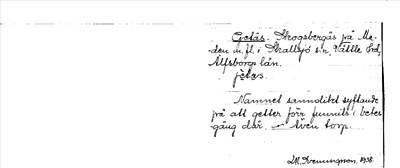 Getås. Skogsbergås på Me-
den m.fl. i Skallsjö s:n, Vättle hd,
Älfsborgs län.
jètas
Namnet sannolikt syftande
på att getter förr funnits i betes
gång där. — Även torp.
1938.